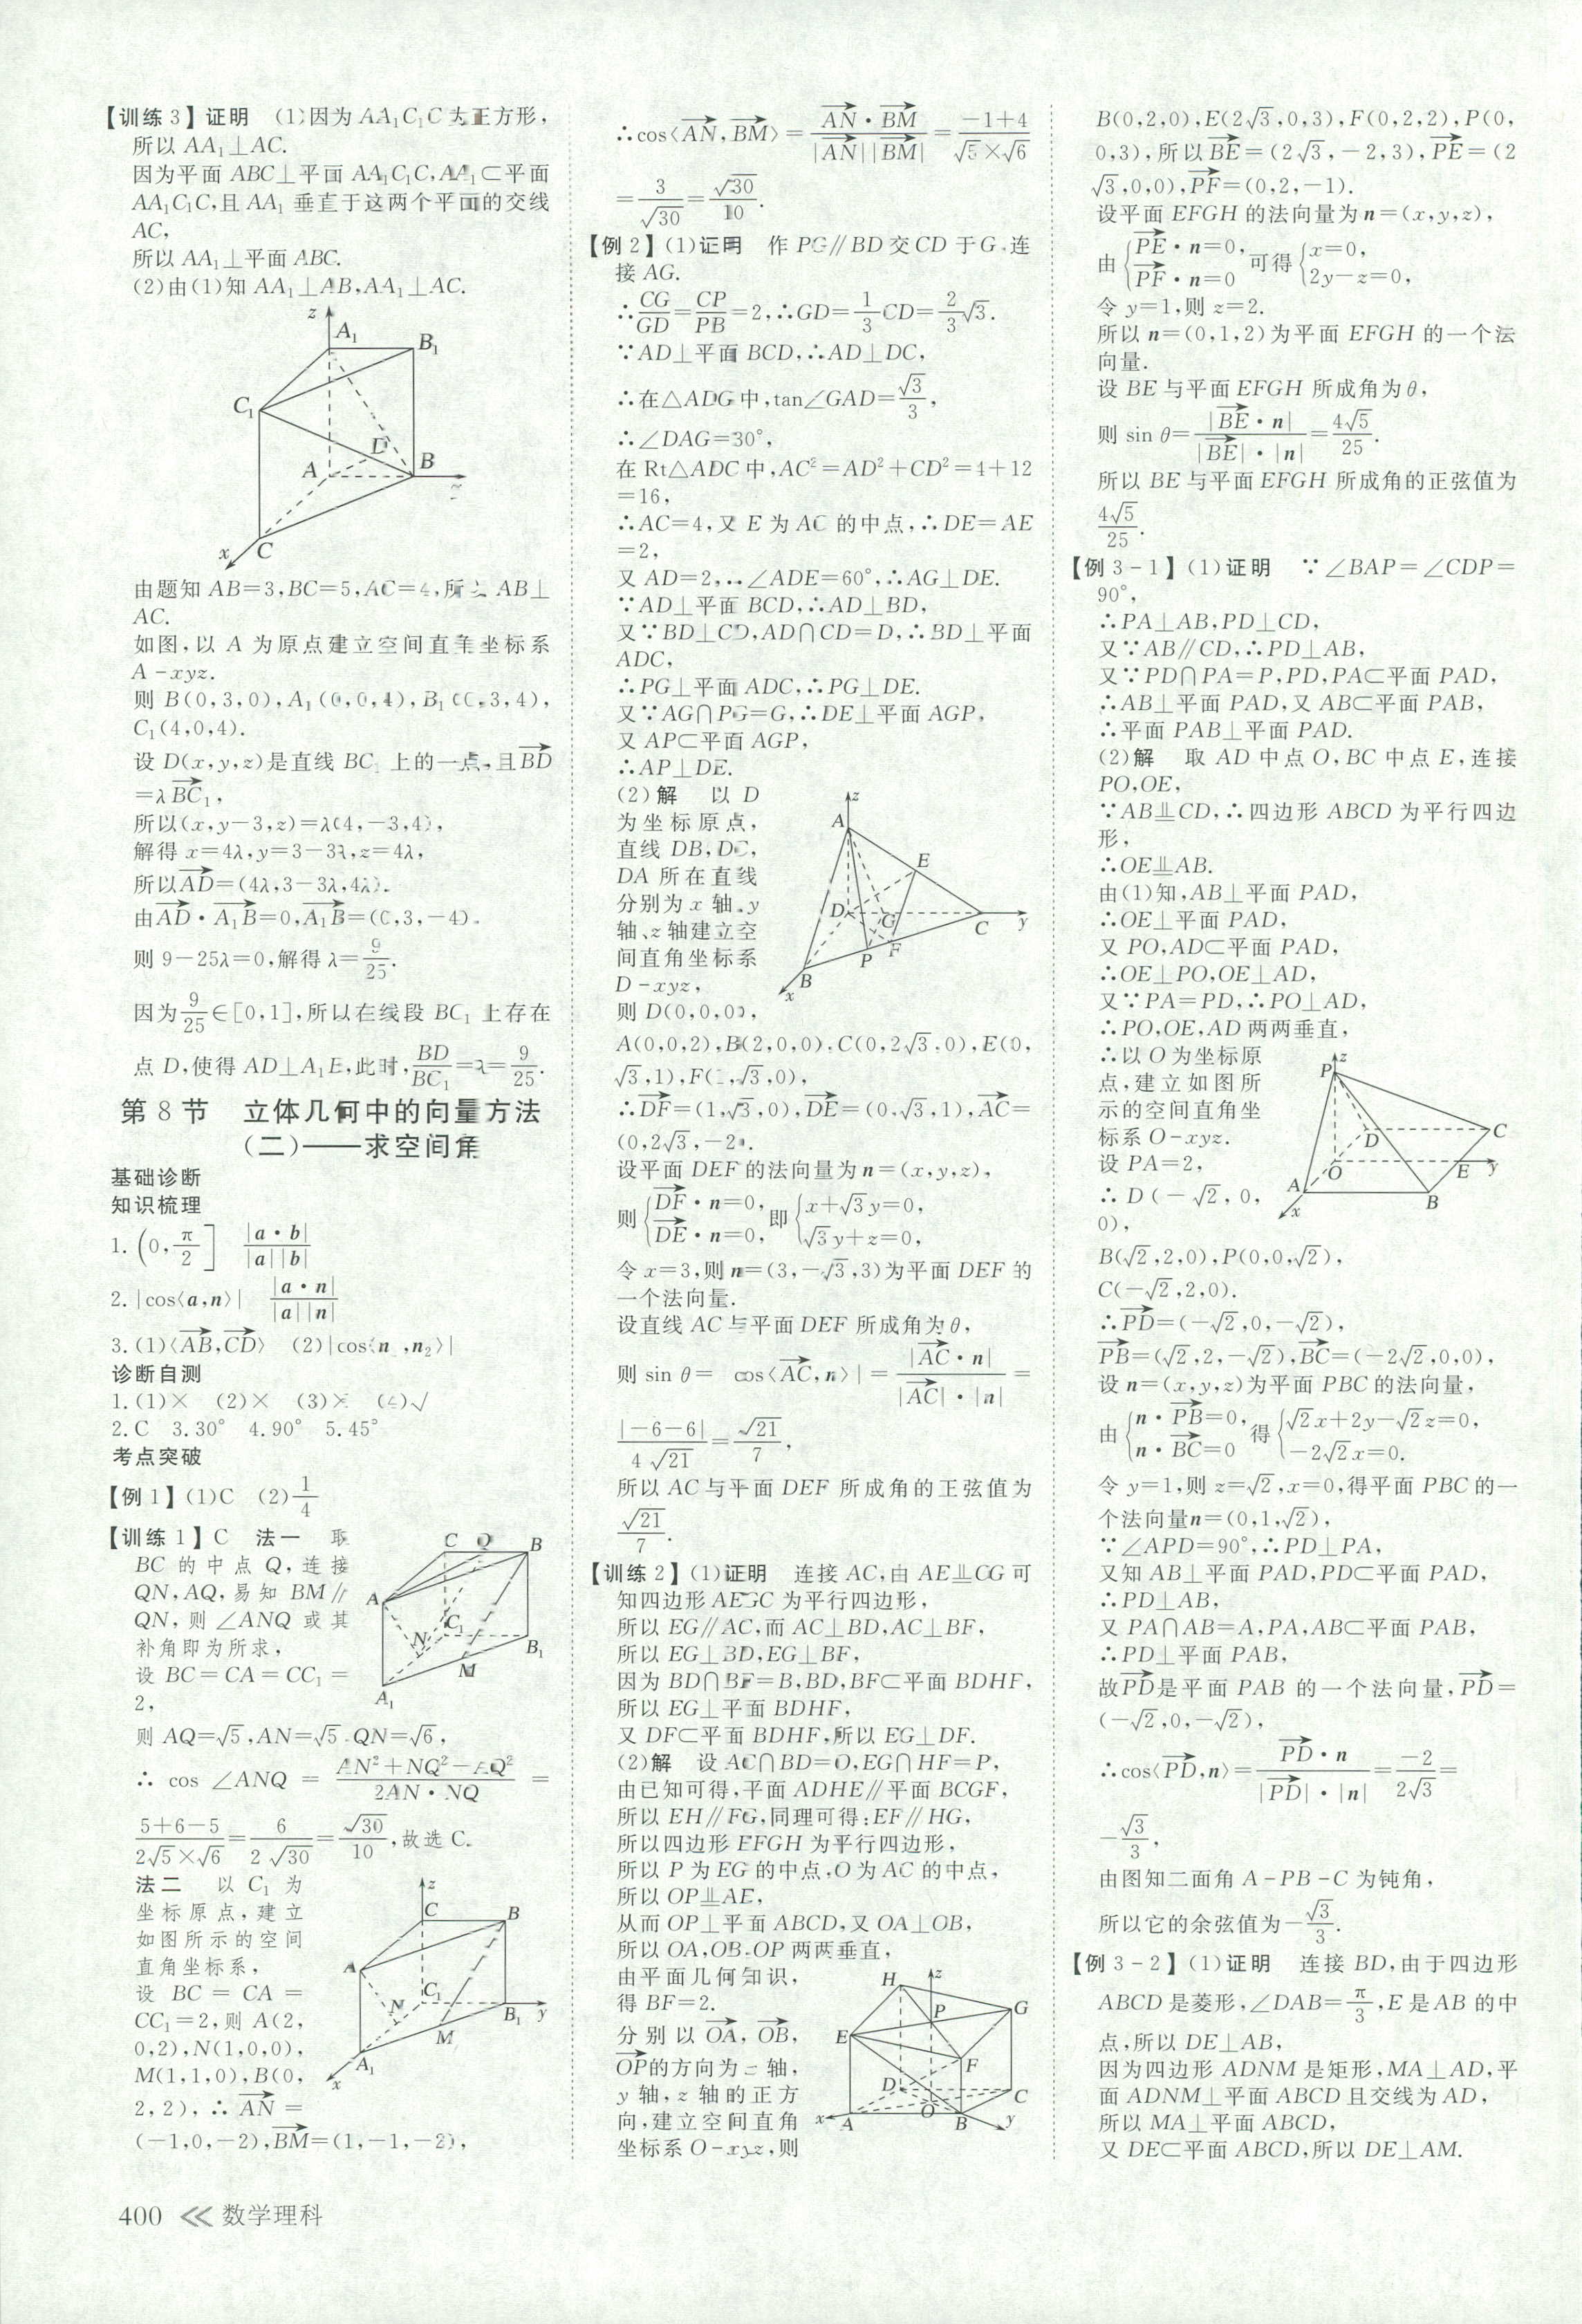 【训练3】证明 (1)因为AA₁C₁C为正方形,
所以AA₁⊥AC.
因为平面ABC⊥平面AA₁C₁C,AA₁⊂平面
AA₁C₁C,且AA₁垂直于这两个平面的交线
AC,
所以AA₁⊥平面ABC.
(2)由(1)知AA₁⊥AB,AA₁⊥AC.
z
A₁
B₁
C₁
D
A
B
x
C
由题知AB=3,BC=5,AC=4,所以AB⊥
AC.
如图,以A为原点建立空间直角坐标系
A-xyz.
则B(0,3,0),A₁(0,0,4),B₁(0,3,4),
C₁(4,0,4).
设D(x,y,z)是直线BC₁上的一点,且BD→
=λBC₁→,
所以(x,y-3,z)=λ(4,-3,4),
解得x=4λ,y=3-3λ,z=4λ,
所以AD→=(4λ,3-3λ,4λ).
由AD→·A₁B→=0,A₁B→=(0,3,-4).
则9-25λ=0,解得λ=9/25.
因为9/25∈[0,1],所以在线段BC₁上存在
点D,使得AD⊥A₁B,此时,BD/BC₁=λ=9/25.
第8节 立体几何中的向量方法
(二)——求空间角
基础诊断
知识梳理
1.(0,π/2] |a·b|/|a||b|
2.|cos⟨a,n⟩| |a·n|/|a||n|
3.(1)⟨AB→,CD→⟩ (2)|cos⟨n₁,n₂⟩|
诊断自测
1.(1)× (2)× (3)× (4)√
2.C 3.30° 4.90° 5.45°
考点突破
【例1】(1)C (2)1/4
【训练1】C 法一 取
BC的中点Q,连接
QN,AQ,易知BM∥
QN,则∠ANQ或其
补角即为所求,
设BC=CA=CC₁=
2,
C Q B
A
C₁
N
B₁
M
A₁
则AQ=√5,AN=√5,QN=√6,
∴cos∠ANQ=(AN²+NQ²-AQ²)/(2AN·NQ)=
(5+6-5)/(2√5×√6)=6/(2√30)=√30/10,故选C.
法二 以C₁为
坐标原点,建立
如图所示的空间
直角坐标系,
设BC=CA=
CC₁=2,则A(2,
0,2),N(1,0,0),
M(1,1,0),B(0,
2,2),∴AN→=
(-1,0,-2),BM→=(1,-1,-2),
z
C
B
A
C₁
N
B₁ y
M
A₁
x
∴cos⟨AN→,BM→⟩=(AN→·BM→)/(|AN→||BM→|)=(-1+4)/(√5×√6)
=3/√30=√30/10.
【例2】(1)证明 作PG∥BD交CD于G,连
接AG.
∴CG/GD=CP/PB=2,∴GD=1/3CD=2/3√3.
∵AD⊥平面BCD,∴AD⊥DC,
∴在△ADG中,tan∠GAD=√3/3,
∴∠DAG=30°,
在Rt△ADC中,AC²=AD²+CD²=4+12
=16,
∴AC=4,又E为AC的中点,∴DE=AE
=2,
又AD=2,∴∠ADE=60°,∴AG⊥DE.
∵AD⊥平面BCD,∴AD⊥BD,
又∵BD⊥CD,AD∩CD=D,∴BD⊥平面
ADC,
∴PG⊥平面ADC,∴PG⊥DE.
又∵AG∩PG=G,∴DE⊥平面AGP,
又AP⊂平面AGP,
∴AP⊥DE.
(2)解 以D
为坐标原点,
直线DB,DC,
DA所在直线
分别为x轴、y
轴、z轴建立空
间直角坐标系
D-xyz,
z
A
E
D
G
C y
F
P
B
x
则D(0,0,0),
A(0,0,2),B(2,0,0),C(0,2√3,0),E(0,
√3,1),F(1,√3,0),
∴DF→=(1,√3,0),DE→=(0,√3,1),AC→=
(0,2√3,-2).
设平面DEF的法向量为n=(x,y,z),
则{DF→·n=0, DE→·n=0, 即{x+√3y=0, √3y+z=0,
令x=3,则n=(3,-√3,3)为平面DEF的
一个法向量.
设直线AC与平面DEF所成角为θ,
则sin θ=|cos⟨AC→,n⟩|=|AC→·n|/(|AC→|·|n|)=
|-6-6|/(4√21)=√21/7,
所以AC与平面DEF所成角的正弦值为
√21/7.
【训练2】(1)证明 连接AC,由AE⫫CG可
知四边形AEGC为平行四边形,
所以EG∥AC,而AC⊥BD,AC⊥BF,
所以EG⊥BD,EG⊥BF,
因为BD∩BF=B,BD,BF⊂平面BDHF,
所以EG⊥平面BDHF,
又DF⊂平面BDHF,所以EG⊥DF.
(2)解 设AC∩BD=O,EG∩HF=P,
由已知可得,平面ADHE∥平面BCGF,
所以EH∥FG,同理可得:EF∥HG,
所以四边形EFGH为平行四边形,
所以P为EG的中点,O为AC的中点,
所以OP⫫AE,
从而OP⊥平面ABCD,又OA⊥OB,
所以OA,OB,OP两两垂直,
由平面几何知识,
得BF=2.
分别以OA→,OB→,
OP→的方向为x轴,
y轴,z轴的正方
向,建立空间直角
坐标系O-xyz,则
z
H
P
G
E
F
D
C
O
x A B y
B(0,2,0),E(2√3,0,3),F(0,2,2),P(0,
0,3),所以BE→=(2√3,-2,3),PE→=(2
√3,0,0),PF→=(0,2,-1).
设平面EFGH的法向量为n=(x,y,z),
由{PE→·n=0, PF→·n=0 可得{x=0, 2y-z=0,
令y=1,则z=2.
所以n=(0,1,2)为平面EFGH的一个法
向量.
设BE与平面EFGH所成角为θ,
则sin θ=|BE→·n|/(|BE→|·|n|)=4√5/25.
所以BE与平面EFGH所成角的正弦值为
4√5/25.
【例3-1】(1)证明 ∵∠BAP=∠CDP=
90°,
∴PA⊥AB,PD⊥CD,
又∵AB∥CD,∴PD⊥AB,
又∵PD∩PA=P,PD,PA⊂平面PAD,
∴AB⊥平面PAD,又AB⊂平面PAB,
∴平面PAB⊥平面PAD.
(2)解 取AD中点O,BC中点E,连接
PO,OE,
∵AB⫫CD,∴四边形ABCD为平行四边
形,
∴OE⫫AB.
由(1)知,AB⊥平面PAD,
∴OE⊥平面PAD,
又PO,AD⊂平面PAD,
∴OE⊥PO,OE⊥AD,
又∵PA=PD,∴PO⊥AD,
∴PO,OE,AD两两垂直,
∴以O为坐标原
点,建立如图所
示的空间直角坐
标系O-xyz.
设PA=2,
∴D(-√2,0,
0),
z
P
D
C
O
E y
A
B
x
B(√2,2,0),P(0,0,√2),
C(-√2,2,0).
∴PD→=(-√2,0,-√2),
PB→=(√2,2,-√2),BC→=(-2√2,0,0),
设n=(x,y,z)为平面PBC的法向量,
由{n·PB→=0, n·BC→=0 得{√2x+2y-√2z=0, -2√2x=0.
令y=1,则z=√2,x=0,得平面PBC的一
个法向量n=(0,1,√2),
∵∠APD=90°,∴PD⊥PA,
又知AB⊥平面PAD,PD⊂平面PAD,
∴PD⊥AB,
又PA∩AB=A,PA,AB⊂平面PAB,
∴PD⊥平面PAB,
故PD→是平面PAB的一个法向量,PD→=
(-√2,0,-√2),
∴cos⟨PD→,n⟩=(PD→·n)/(|PD→|·|n|)=-2/(2√3)=
-√3/3,
由图知二面角A-PB-C为钝角,
所以它的余弦值为-√3/3.
【例3-2】(1)证明 连接BD,由于四边形
ABCD是菱形,∠DAB=π/3,E是AB的中
点,所以DE⊥AB,
因为四边形ADNM是矩形,MA⊥AD,平
面ADNM⊥平面ABCD且交线为AD,
所以MA⊥平面ABCD,
又DE⊂平面ABCD,所以DE⊥AM.
400 《 数学理科